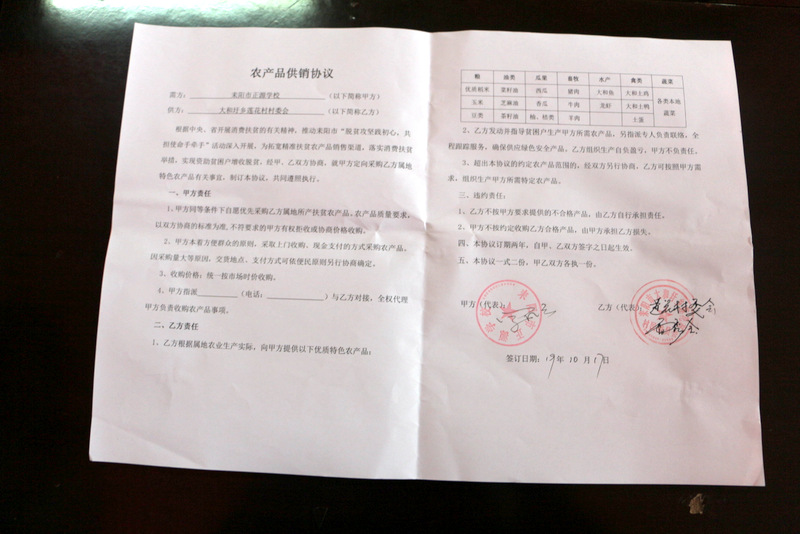 农产品供销协议
需方： 耒阳市正源学校 （以下简称甲方）
供方： 大和圩乡莲花村村委会 （以下简称乙方）
根据中央、省开展消费扶贫的有关精神，推动耒阳市“脱贫攻坚践初心，共
担使命手牵手”活动深入开展，为拓宽精准扶贫农产品销售渠道，落实消费扶贫
举措，实现资助贫困户增收脱贫，经甲、乙双方协商，就甲方定向采购乙方属地
特色农产品有关事宜，制订本协议，共同遵照执行。
一、甲方责任
1、甲方同等条件下自愿优先采购乙方属地所产扶贫农产品。农产品质量要求，
以双方协商的标准为准，不符要求的甲方有权拒收或协商价格收购。
2、甲方本着方便群众的原则，采取上门收购、现金支付的方式采购农产品。
因采购量大等原因，交货地点、支付方式可依便民原则另行协商确定。
3、收购价格：统一按市场时价收购。
4、甲方指派 （电话： ）与乙方对接，全权代理
甲方负责收购农产品事项。
二、乙方责任
1、乙方根据属地农业生产实际，向甲方提供以下优质特色农产品：
粮 油类 瓜果 畜牧 水产 禽类 蔬菜
优质稻米 菜籽油 西瓜 猪肉 大和鱼 大和土鸡 各类本地蔬菜
玉米 芝麻油 香瓜 牛肉 龙虾 大和土鸭
豆类 茶籽油 柚、桔类 羊肉 土蛋
2、乙方发动并指导贫困户生产甲方所需农产品，另指派专人负责联络，全
程跟踪服务，确保供应绿色安全产品，乙方组织生产自负盈亏，甲方不负责任。
3、超出本协议的约定农产品范围的，经双方另行协商，乙方可按照甲方需
求，组织生产甲方所需特定农产品。
三、违约责任：
1、乙方不按甲方要求提供的不合格产品，由乙方自行承担责任。
2、甲方不按约定收购乙方合格产品，由甲方承担乙方损失。
四、本协议订期两年，自甲、乙双方签字之日起生效。
五、本协议一式二份，甲乙双方各执一份。
甲方（代表）：
乙方（代表）：莲花村委会
签订日期：19年10月17日